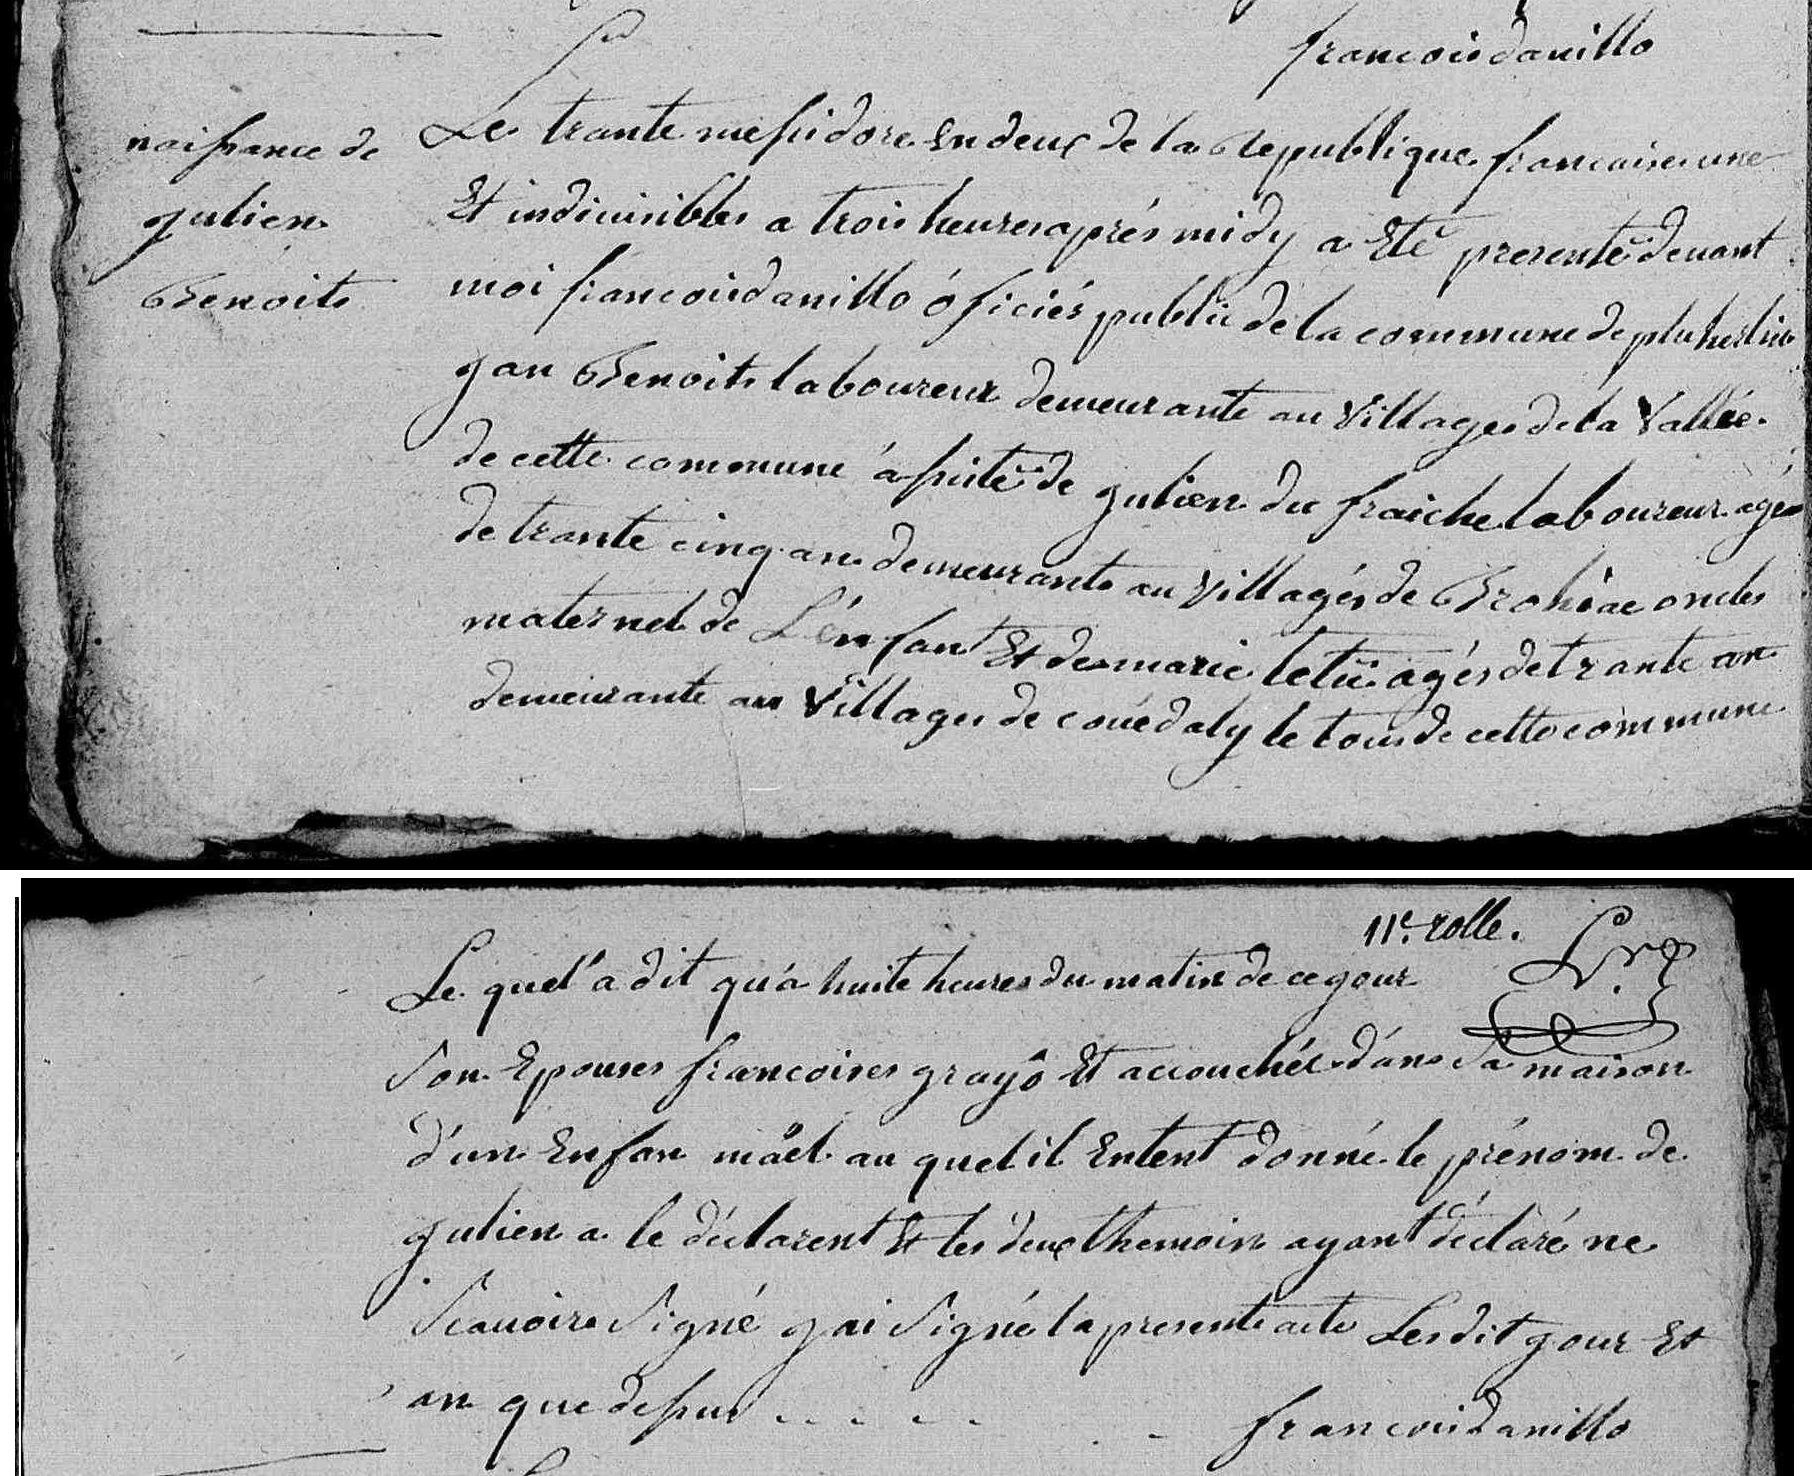 francois danillo
naissance de
gulien
Benoits
Le trante messidore En deux de la Republique francaise une
Et indiuisibles a trois heures aprés midy a Eté presenté deuant
moi francois danillo óficiés public de la commune de pluherlin
gan Benoits laboureur demeurante au Villages de la Vallée
de cette commune ásisté de gulien du fraiche laboureur agés
de trante cinq ans demeurants au Villagés de Brohéac oncles
maternel de L'énfant Et de marie letu agés de trante an
demeurante au Villages de couédaly le tous de cette commune
11e. rolle.
Le quel á dit qu'á huite heures du matin de ce gour
Son Epouses francoises grayó Et accouchée dáns Sa maison
d'un Enfan mâel au quel il Entent donné le prénom de
gulien a le déclarent Et les deux themoin ayant déclaré ne
Scauoire Signé gai Signé la presente acte Lesdit gour Et
an que desus . . . . .
francois danillo